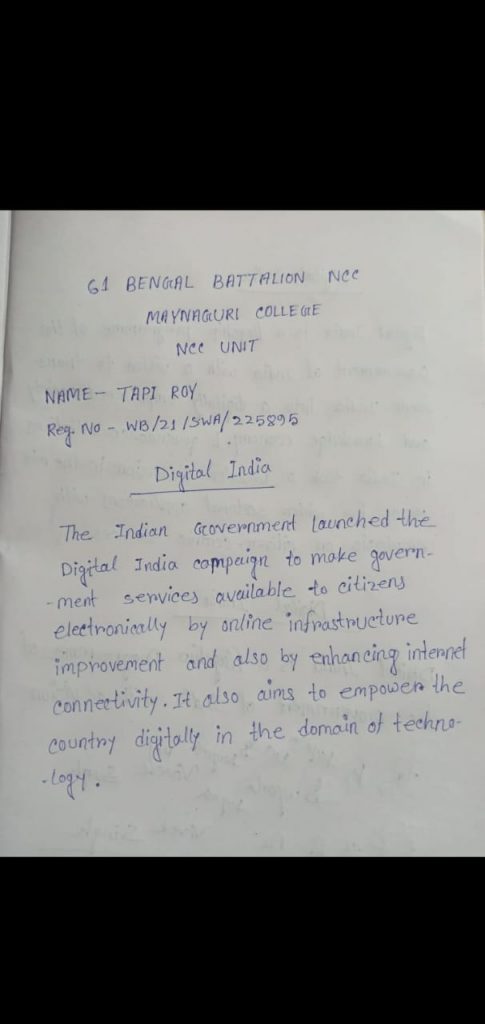 61 BENGAL BATTALION NCC
MAYNAGURI COLLEGE
NCC UNIT
NAME - TAPI ROY
Reg. No - WB/21/SWA/225895
Digital India
The Indian Government launched the
Digital India campaign to make govern-
-ment services available to citizens
electronically by online infrastructure
improvement and also by enhancing internet
connectivity. It also aims to empower the
country digitally in the domain of techno-
-logy.